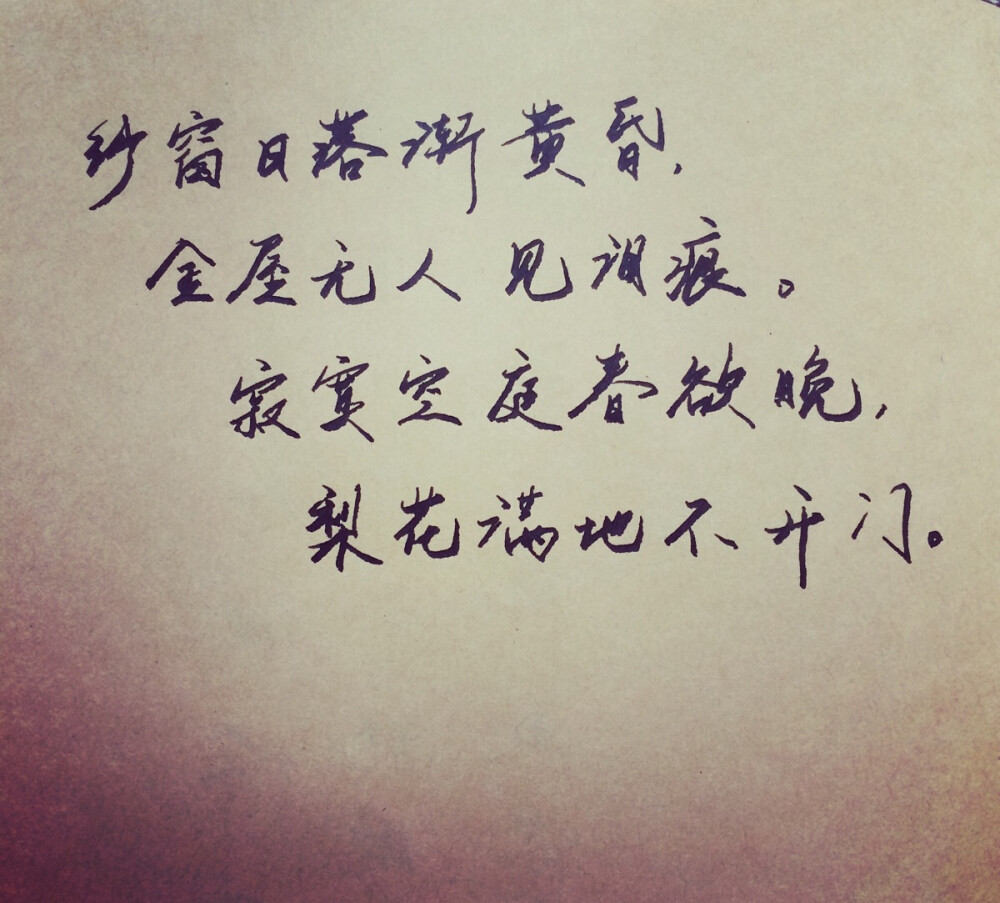 纱窗日落渐黄昏,
金屋无人见泪痕。
寂寞空庭春欲晚,
梨花满地不开门。